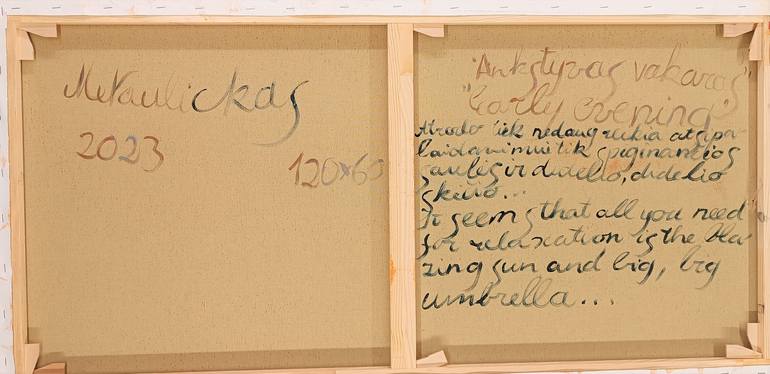 Metaulickas
2023
120x60
"Ankstyvas vakaras"
"Early evening"
Atrodo tiek nedaug reikia atsipa-
laidavimui tik spiginančios
saulės ir didelio, didelio
skėčio...
It seems that all you need
for relaxation is the bla-
zing sun and big, big
umbrella...